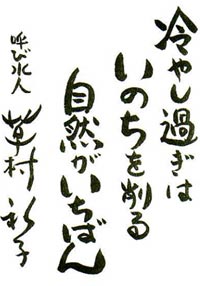 冷やし過ぎは
いのちを削る
自然がいちばん
呼び水人
草村彩子